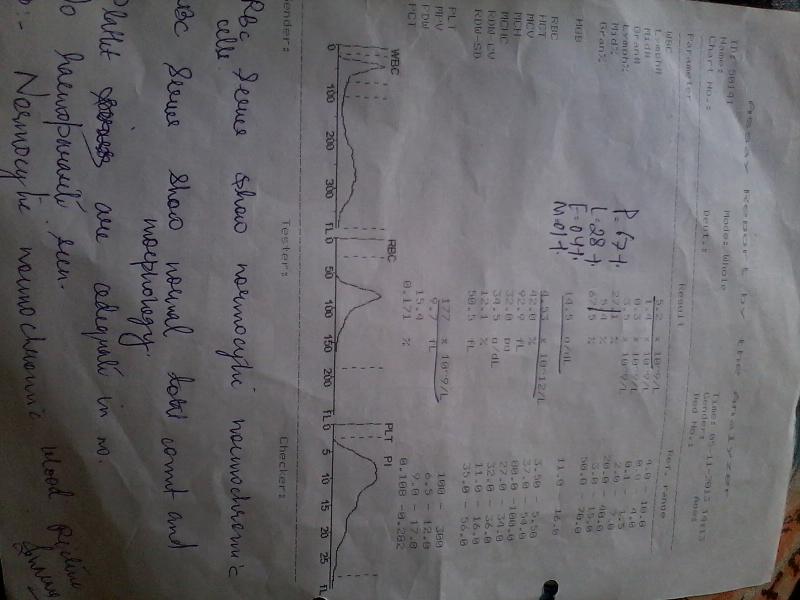 Assay Report by the Analyzer
Mode: Whole Time: 05-11-2013 14:13
Name: Dept.: Gender:
Chart No.: Bed No.:
Parameter Result Ref. range
WBC 5.2 x 10^9/L 4.0 - 10.0
Lymph# 1.4 x 10^9/L
Mid# 0.3 x 10^9/L 0.1 - 1.5
Gran# 3.5 x 10^9/L 2.0 -
Lymph% 27.1 % 20.0 - 40.0
Mid% 5.4 % 3.0 - 15.0
Gran% 67.5 % 50.0 - 70.0
P=67%
L=28%
E=04%
M=01%
HGB 14.5 g/dL 11.0 - 16.0
RBC 4.53 x 10^12/L 3.50 - 5.50
HCT 42.0 % 37.0 - 54.0
MCV 92.9 fL 80.0 - 100.0
MCH 32.0 pg 27.0 - 34.0
MCHC 34.5 g/dL 32.0 - 36.0
RDW-CV 12.1 % 11.0 - 16.0
RDW-SD 50.5 fL 35.0 - 56.0
PLT 177 x 10^9/L 100 - 300
MPV 9.7 fL 6.5 - 12.0
PDW 15.4 9.0 - 17.0
PCT 0.171 % 0.108 -0.282
WBC RBC PLT
0 100 200 300 fL 0 50 100 150 200 fL 0 5 10 15 20 25 fL
Sender: Tester: Checker:
RBC Series show normocytic normochromic
cells.
WBC Series show normal total count and
morphology.
Platlet are adequate in no.
No haemoparasite seen.
:- Normocytic normochromic blood picture